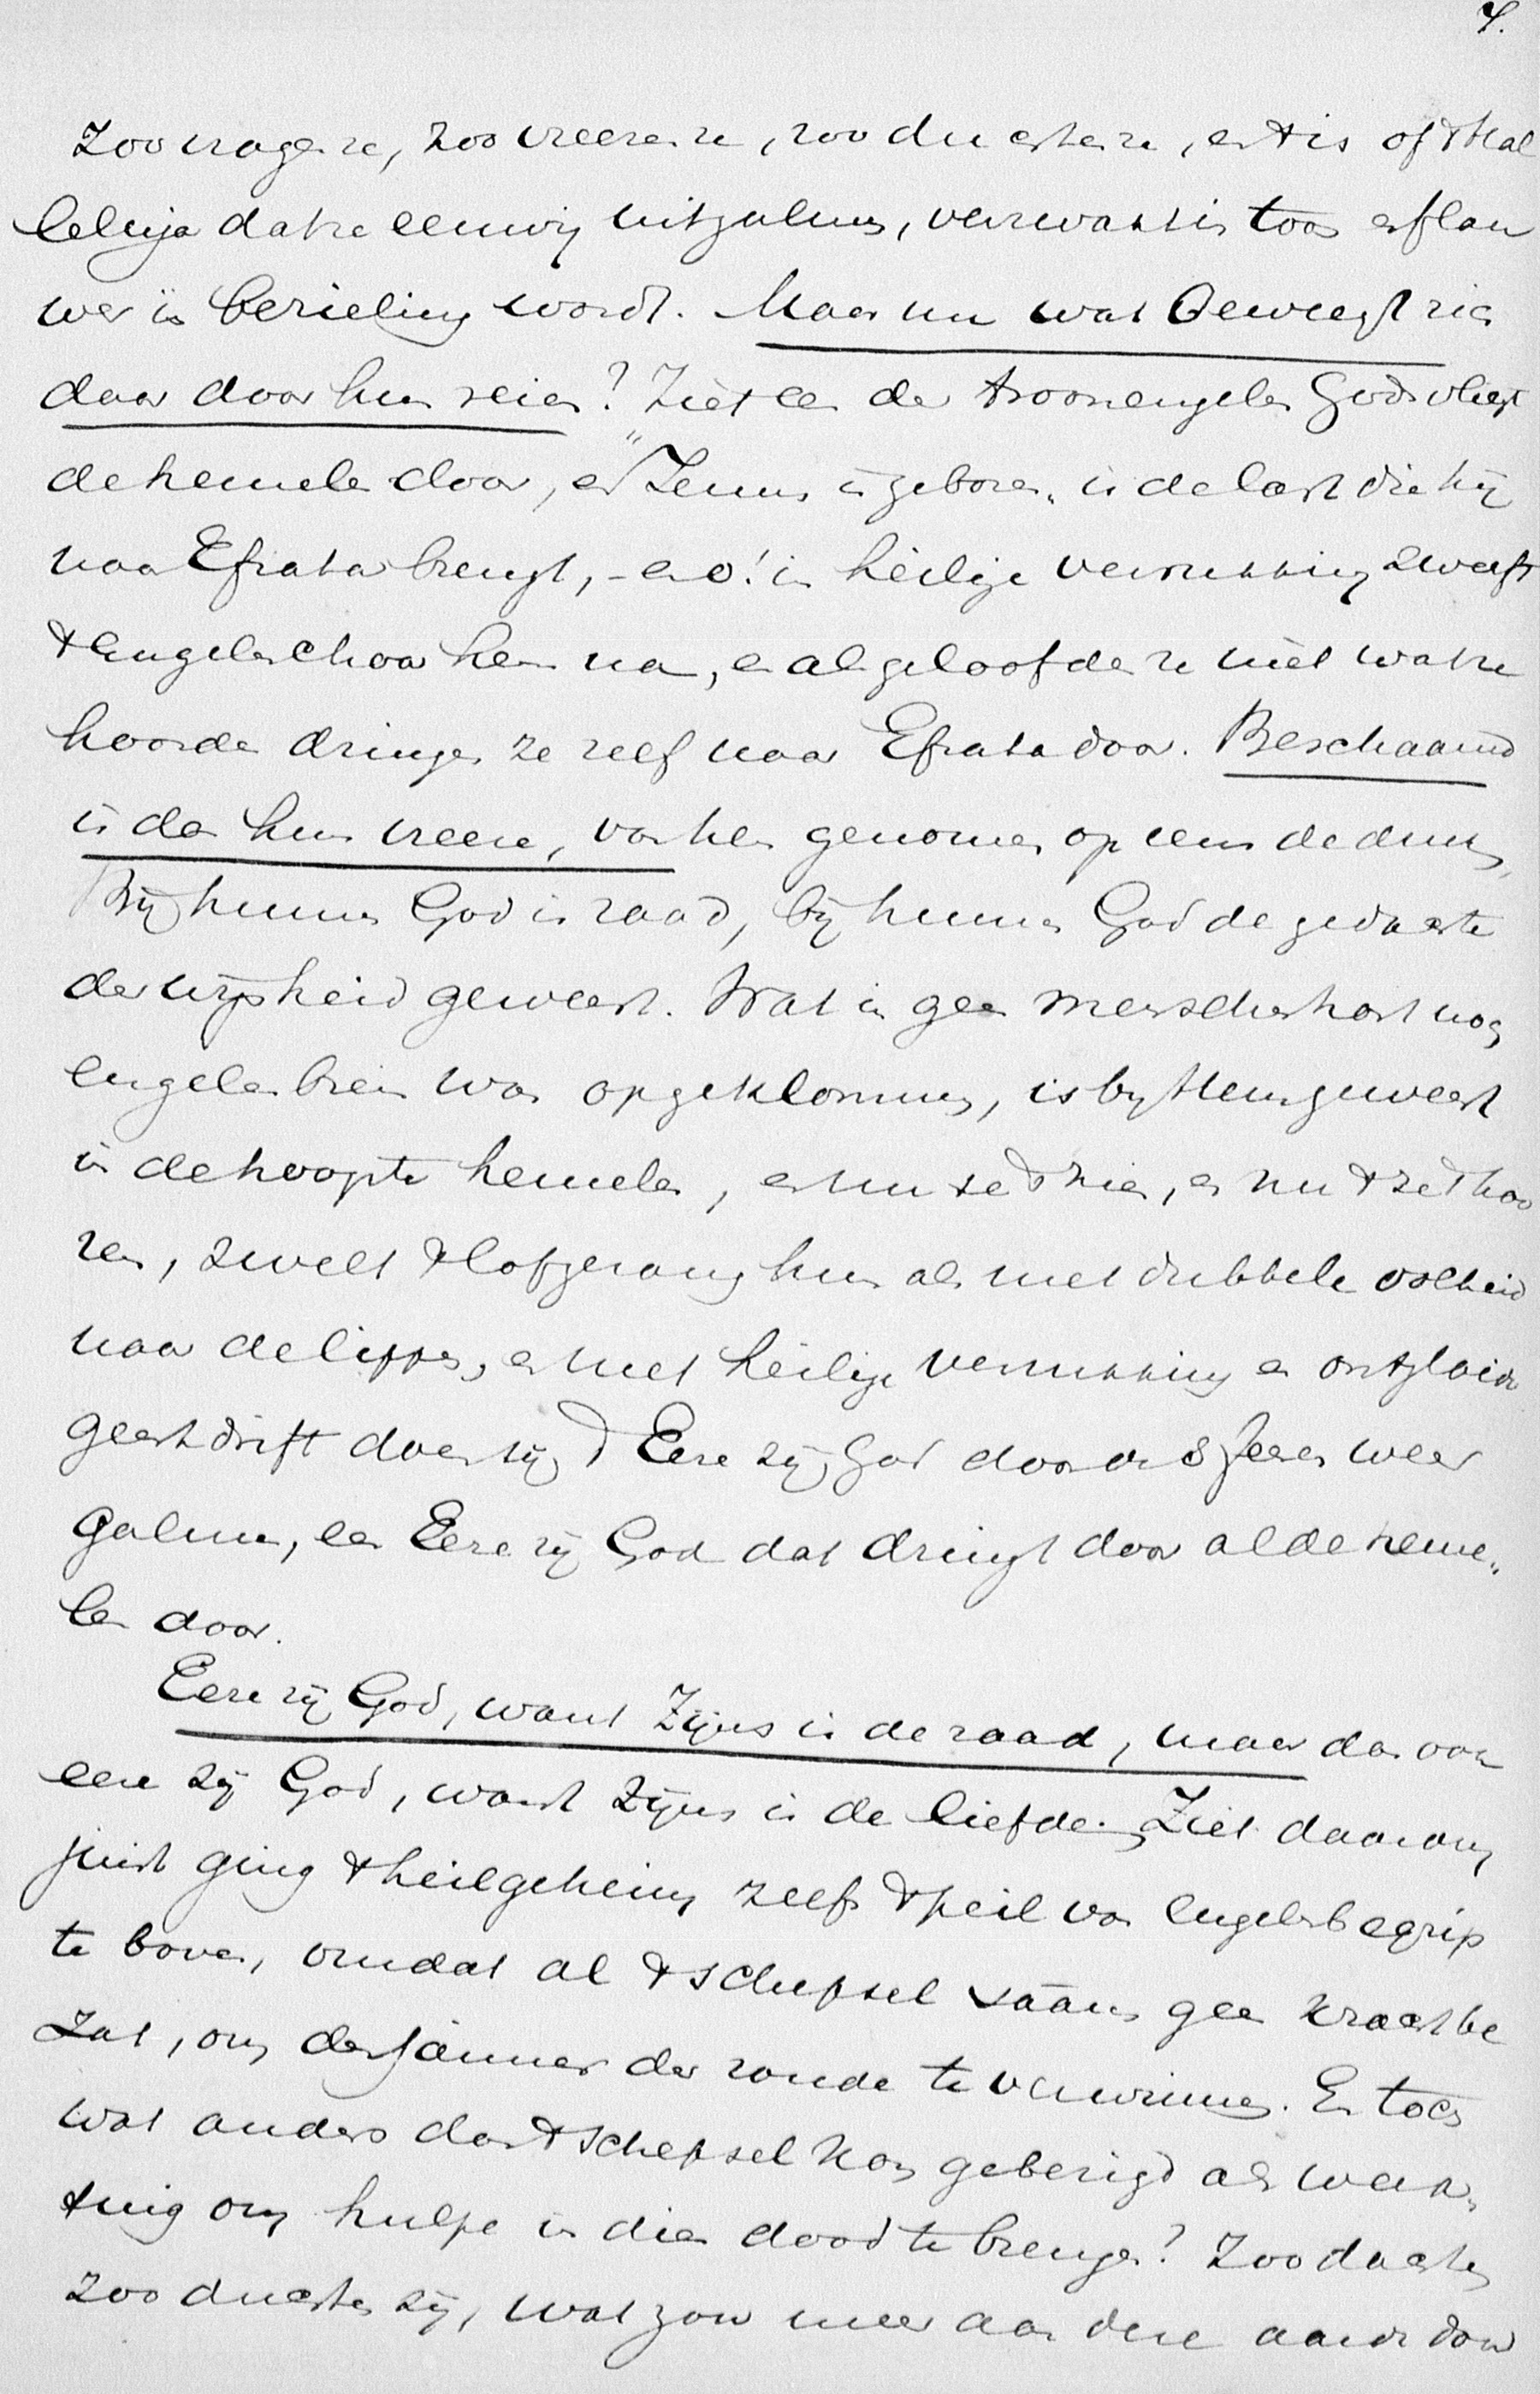 7.
Zoo vragen ze, zoo vreezen ze, zoo duchten ze, en 't is of 't Hal
leluja dat ze eeuwig uitgalmen, verzwakt in toon en flau
wer in bezieling wordt. Maar nu wat beweegt zich
daar door hun reien? Ziet een der troonengelen Gods vliegt
de hemelen door, en "Jezus is geboren" is de last die hij
naar Efrata brengt, - en o! in heilige verrukking zweeft
't Engelenchoor hem na, en als geloofden ze niet wat ze
hoorden dringen ze zelf naar Efrata door. Beschaamd
is dan hun vreeze, van hen genomen op eens de druk,
Bij hunnen God is raad, bij hunnen God de gedachte
der wijsheid geweest. Wat in geen menschenhart nog
engelenbrein was opgeklommen, is bij Hem geweest
in de hoogste hemelen, en nu ze 't zien, en nu ze 't hoo
ren, zwelt 't lofgezang hun als met dubbele volheid
naar de lippen, en met heilige verrukking en ontgloeide
geestdrift doen zij 't Eere zij God door de sferen weer
galmen, een Eere zij God dat dringt door al de heme„
len door.
Eere zij God, want Zijns is de raad, maar dan ook
eere zij God, want Zijns is de liefde. Ziet daarom
juist ging 't heilgeheim zelfs 't peil van Engelenbegrip
te boven, omdat al 't schepsel saam geen kracht be
zat, om den jammer der zonde te verwinnen. En toch
wat anders dan 't schepsel kon gebezigd als werk„
tuig om hulpe in dien dood te brengen? Zoo dachten
zoo duchten zij, wat zou meer aan deze aarde dan